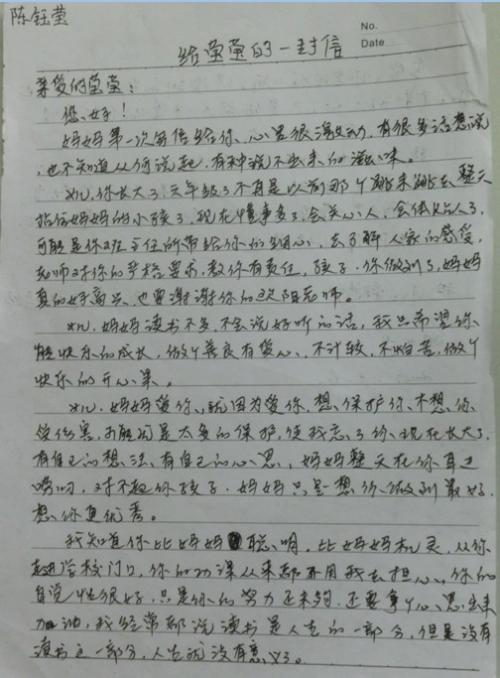 陈钰莹
No.
Date
给莹莹的一封信
亲爱的莹莹:
您好!
妈妈第一次写信给你,心里很激动,有很多话想说
,也不知道从何说起,有种说不出来的滋味。
女儿,你长大了,六年级了不再是以前那个跳来跳去整天
指住妈妈的小孩了,现在懂事多了,会关心人,会体贴人了,
可能是你班主任所带给你的细心,去了解人家的感受,
老师对你的严格要求,教你有责任,孩子,你做到了,妈妈
真的好高兴,也要谢谢你的欧阳老师。
女儿,妈妈读书不多,不会说好听的话,我只希望你
能快乐的成长,做个善良有爱心、不计较,不怕苦,做个
快乐的开心果。
女儿,妈妈爱你,就因为爱你,想保护你,不想你
受伤害,可能就是太多的保护,使我忘了你现在长大了,
有自己的想法,有自己的心思,妈妈整天在你耳边
唠叨,对不起你孩子,妈妈只是想你做到最好,
想你更优秀。
我知道你比妈妈聪明,比妈妈机灵,从你
走进学校门口,你的功课从来都不用我去担心,你的
自觉性很好,只是你的努力还未够,还要拿个心思出来
加油,我经常都说读书是人生的一部分,但是没有
读书这一部分,人生就没有意义了。